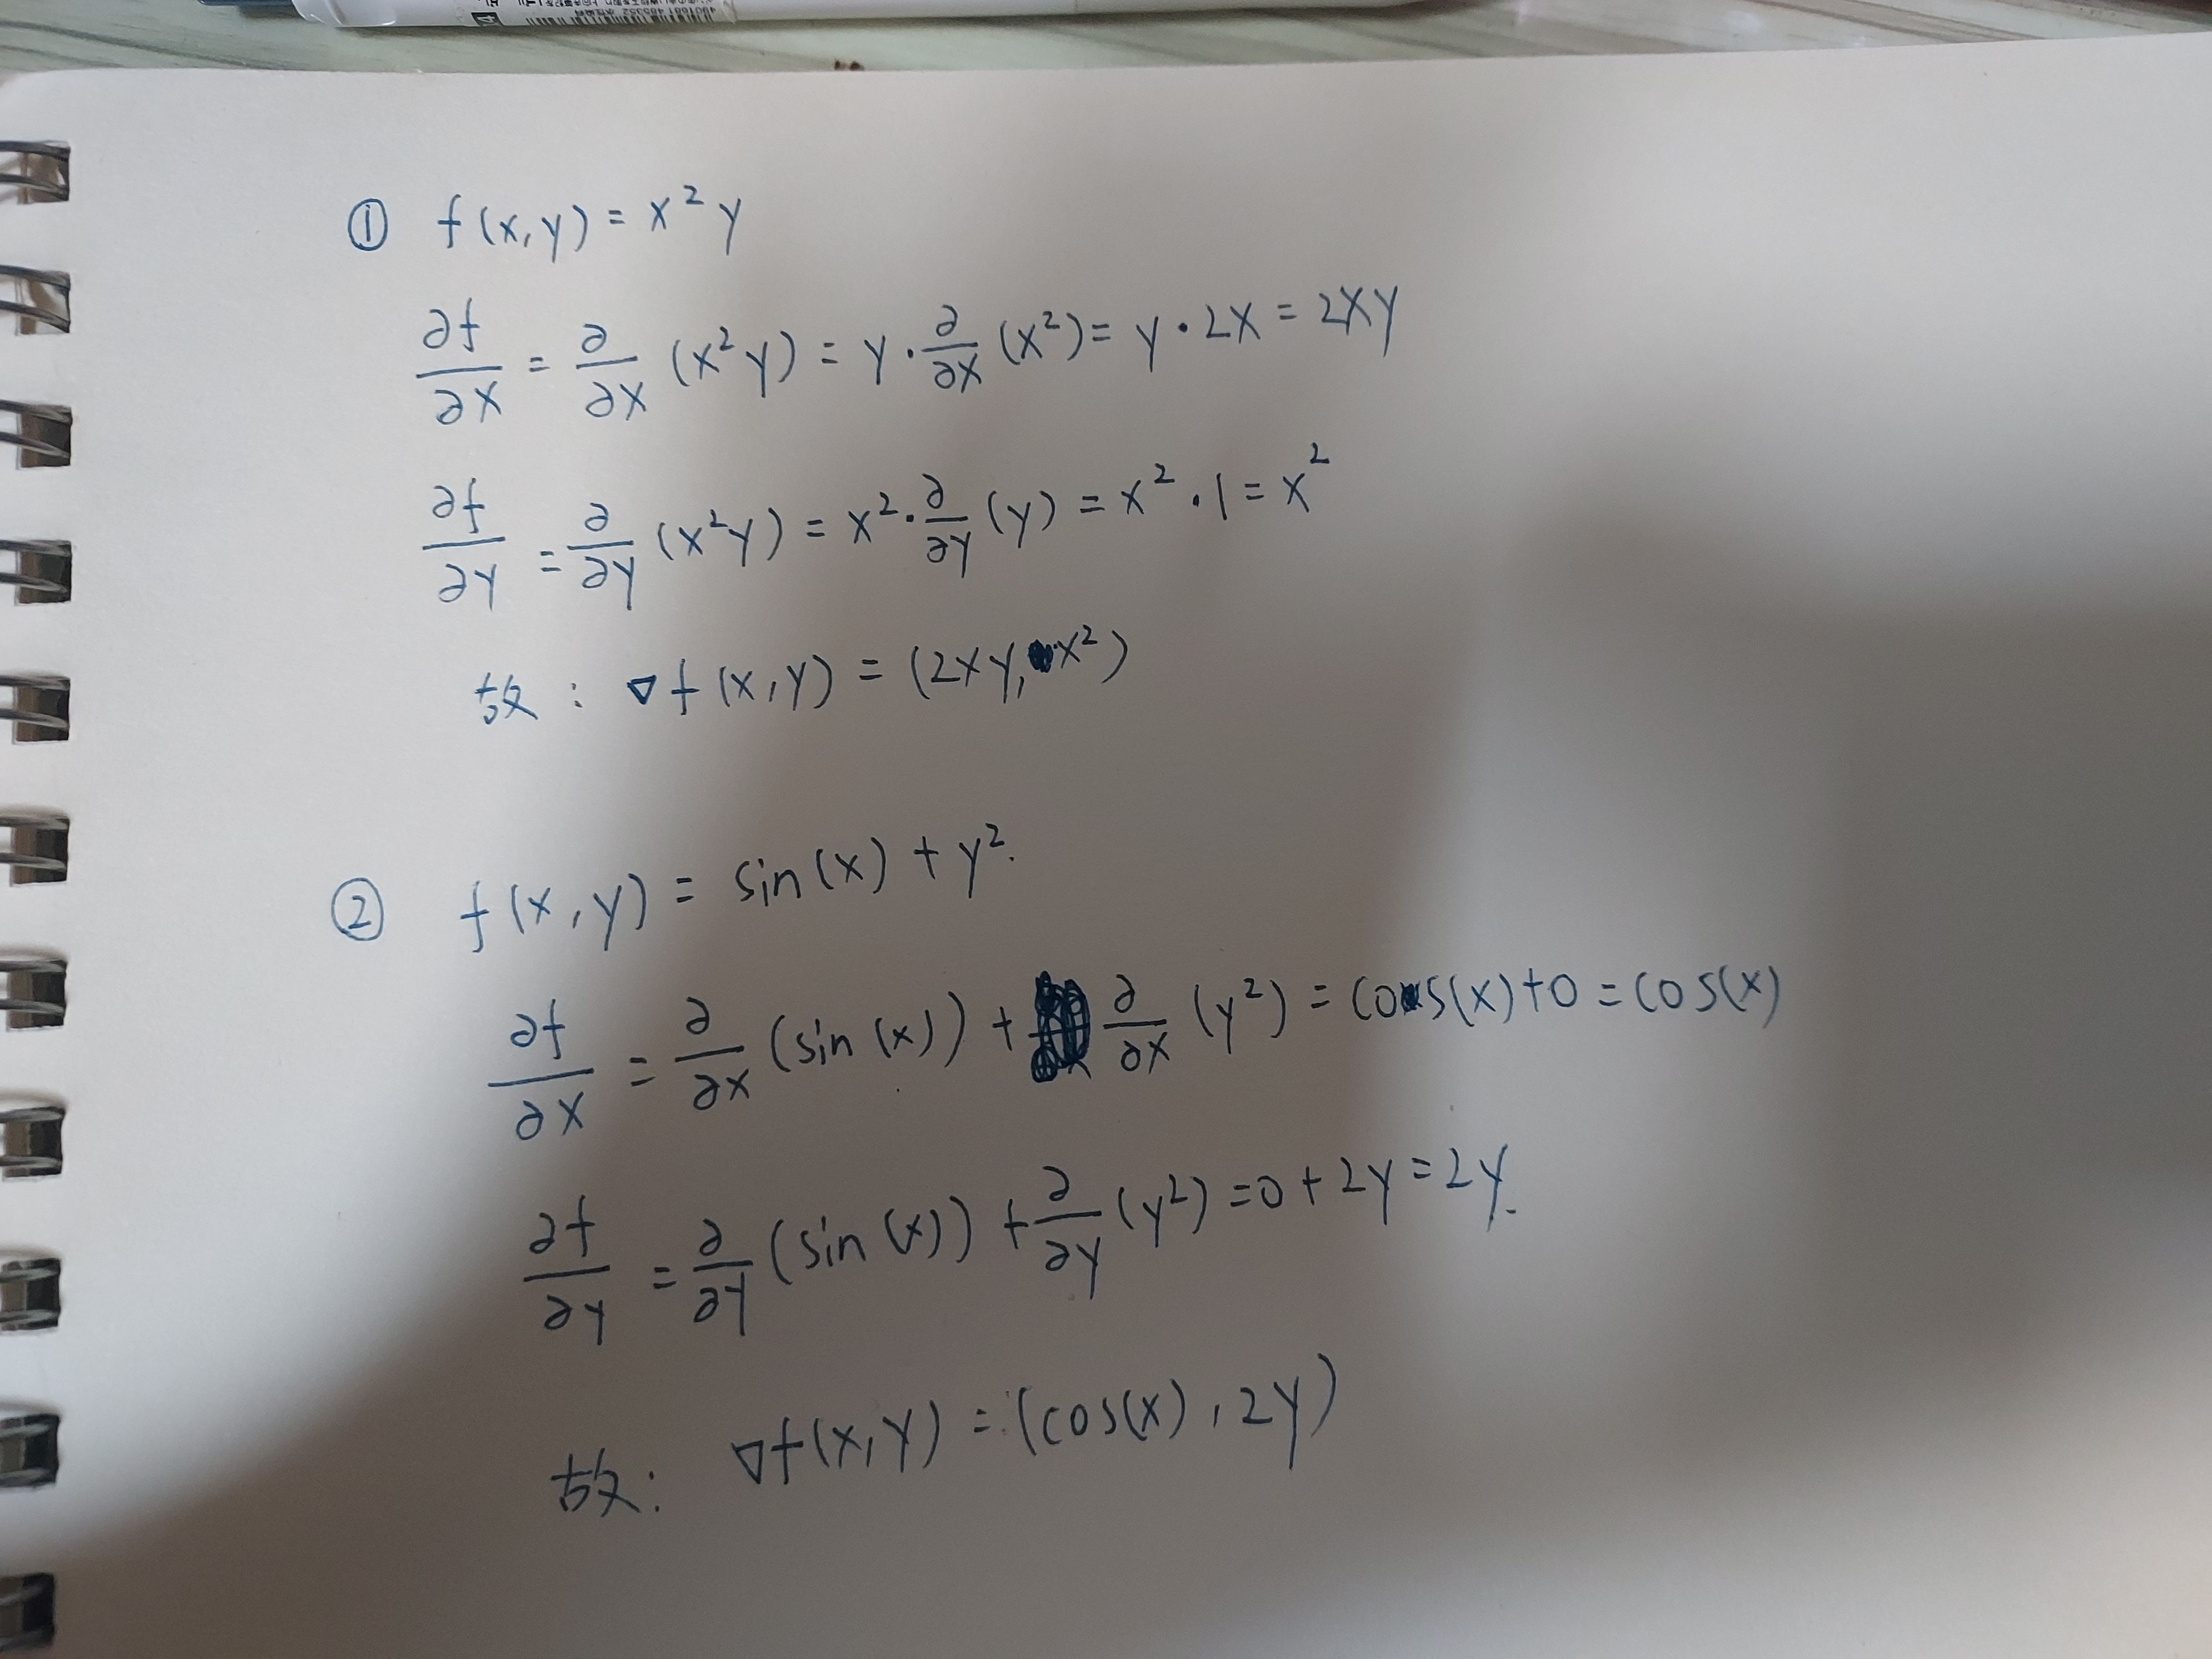 ① f(x,y) = x²y
∂f/∂x = ∂/∂x (x²y) = y·∂/∂x (x²) = y·2x = 2xy
∂f/∂y = ∂/∂y (x²y) = x²·∂/∂y (y) = x²·1 = x²
故: ∇f(x,y) = (2xy, x²)
② f(x,y) = sin(x) + y².
∂f/∂x = ∂/∂x (sin(x)) + ∂/∂x (y²) = cos(x)+0 = cos(x)
∂f/∂y = ∂/∂y (sin(x)) + ∂/∂y (y²) = 0 + 2y = 2y.
故: ∇f(x,y) = (cos(x), 2y)